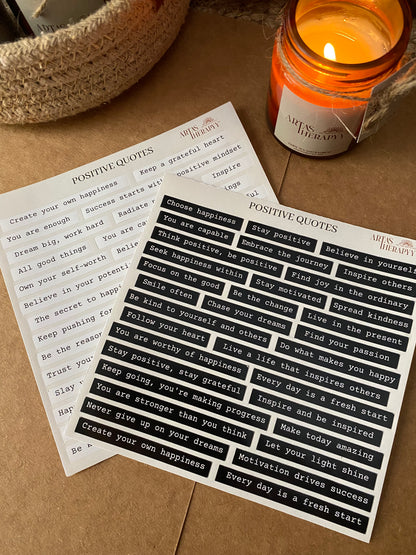 ART AS
THERAPY
POSITIVE QUOTES
ART AS
THERAPY
Create your own happiness
Keep a grateful heart
You are enough
Success starts with
positive mindset
Dream big, work hard
Radiate
Inspire
All good things
You are
Own your self-worth
Believe
Believe in your potent
The secret to happ
Keep pushing fo
Be the reaso
Trust your
Slay
POSITIVE QUOTES
ART AS
THERAPY
Choose happiness
Stay positive
Believe in yourself
You are capable
Embrace the journey
Inspire others
Think positive, be positive
Find joy in the ordinary
Seek happiness within
Stay motivated
Spread kindness
Focus on the good
Be the change
Live in the present
Smile often
Chase your dreams
Find your passion
Be kind to yourself and others
Do what makes you happy
Follow your heart
Live a life that inspires others
You are worthy of happiness
Every day is a fresh start
Stay positive, stay grateful
Inspire and be inspired
Keep going, you're making progress
Make today amazing
You are stronger than you think
Let your light shine
Never give up on your dreams
Motivation drives success
Create your own happiness
Every day is a fresh start